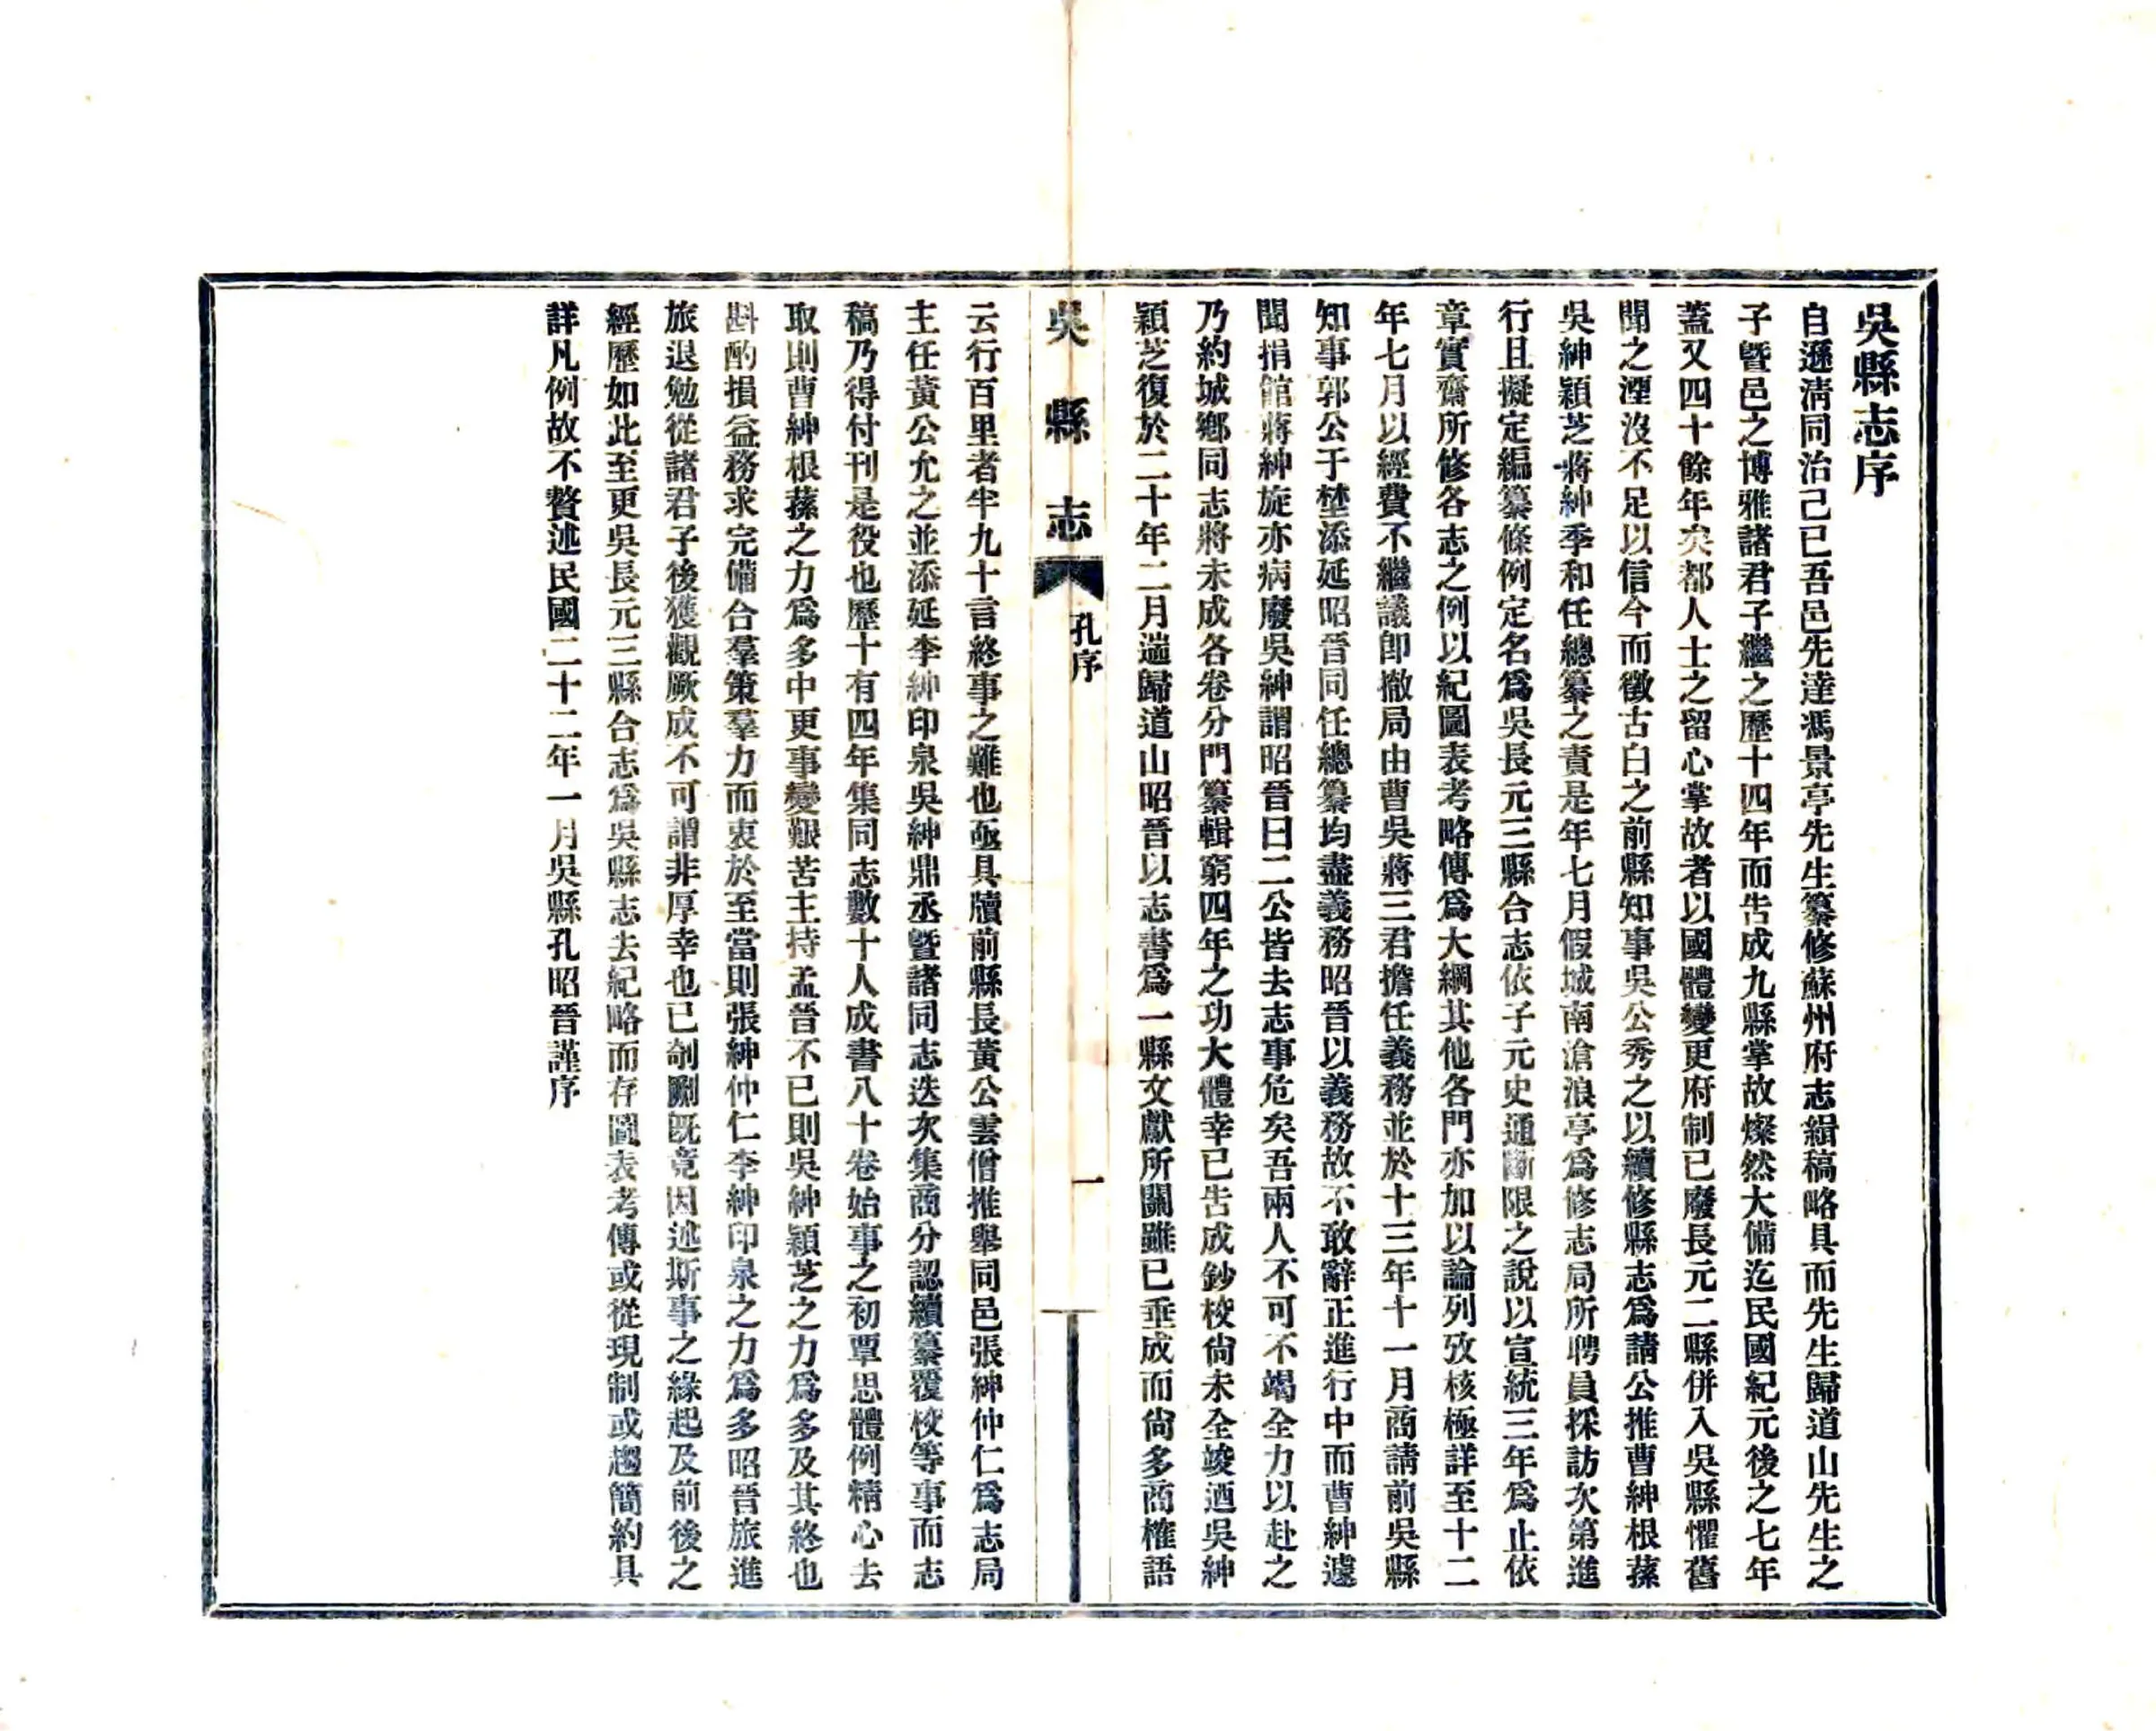 吳縣志序
自遜淸同治己巳吾邑先達馮景亭先生纂修蘇州府志緝稿略具而先生歸道山先生之
子曁邑之博雅諸君子繼之歷十四年而吿成九縣掌故燦然大備迄民國紀元後之七年
蓋又四十餘年矣都人士之留心掌故者以國體變更府制已廢長元二縣併入吳縣懼舊
聞之湮沒不足以信今而徵古白之前縣知事吳公秀之以續修縣志爲請公推曹紳根蓀
吳紳穎芝蔣紳季和任總纂之責是年七月假城南滄浪亭爲修志局所聘員採訪次第進
行且擬定編纂條例定名爲吳長元三縣合志依子元史通斷限之說以宣統三年爲止依
章實齋所修各志之例以紀圖表考略傳爲大綱其他各門亦加以論列攷核極詳至十二
年七月以經費不繼議卽撤局由曹吳蔣三君擔任義務並於十三年十一月商請前吳縣
知事郭公于埜添延昭晉同任總纂均盡義務昭晉以義務故不敢辭正進行中而曹紳遽
聞捐館蔣紳旋亦病廢吳紳謂昭晉曰二公皆去志事危矣吾兩人不可不竭全力以赴之
乃約城鄉同志將未成各卷分門纂輯窮四年之功大體幸已吿成鈔校尙未全竣迺吳紳
穎芝復於二十年二月遄歸道山昭晉以志書爲一縣文獻所關雖已垂成而尙多商榷語
吳縣志
孔序
一
云行百里者半九十言終事之難也亟具牘前縣長黃公雲僧推舉同邑張紳仲仁爲志局
主任黃公允之並添延李紳印泉吳紳鼎丞曁諸同志迭次集商分認續纂覆校等事而志
稿乃得付刊是役也歷十有四年集同志數十人成書八十卷始事之初覃思體例精心去
取則曹紳根蓀之力爲多中更事變艱苦主持孟晉不已則吳紳穎芝之力爲多及其終也
斟酌損益務求完備合羣策羣力而衷於至當則張紳仲仁李紳印泉之力爲多昭晉旅進
旅退勉從諸君子後獲觀厥成不可謂非厚幸也已剞劂旣竟因述斯事之緣起及前後之
經歷如此至更吳長元三縣合志爲吳縣志去紀略而存圖表考傳或從現制或趨簡約具
詳凡例故不贅述民國二十二年一月吳縣孔昭晉謹序